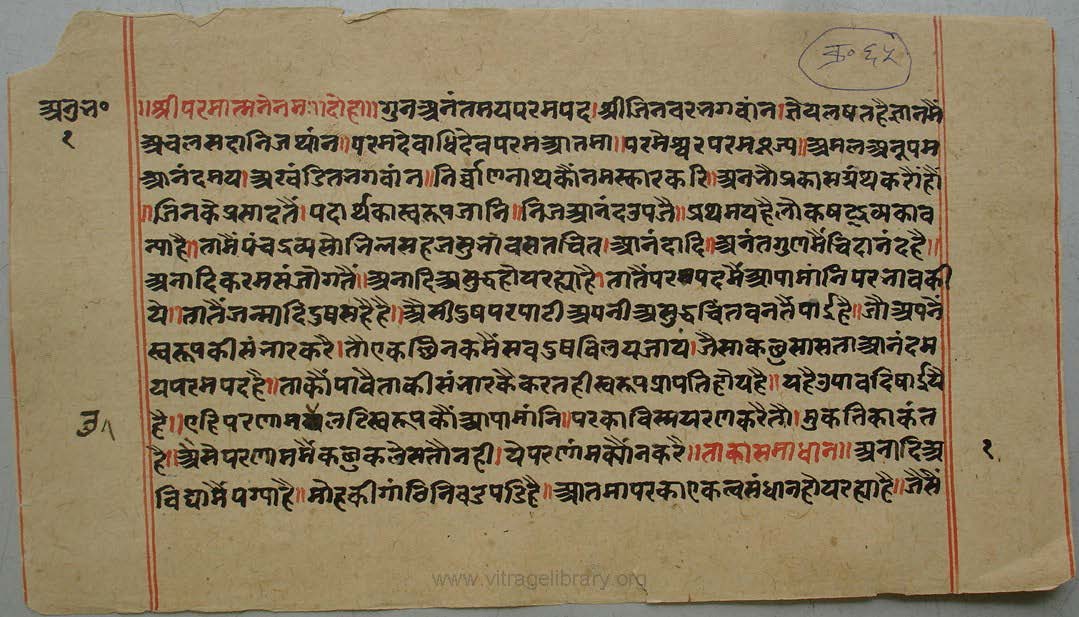 क्र० ६५
अनुभ०
१
॥श्रीपरमात्मनेनमः॥दोहा॥गुनअनंतमयपरमपद।श्रीजिनवरभगवांन।ज्ञेयलषतहैज्ञानमैं
अचलसदानिजथांन॥परमदेवाधिदेवपरमआतमा॥परमेश्वरपरमपूज्य॥अमलअनूपम
आनंदमय।अखंडितभगवांन॥निर्व्वाणनाथकौंनमस्कारकरि॥अनभौप्रकासग्रंथकरौंहौं
॥जिनकेप्रसादतैं।पदार्थकास्वरूपजानि॥निजआनंदउपजै॥प्रथमयहैलौकषट्द्रव्यकाव
न्याहै॥तामैंपंचद्रव्यसौंभिन्नसहजसुभावसतचित।आनंदादि॥अनंतगुणमैंचिदानंदहै॥
अनादिकरमसंजोगतैं॥अनादिअसुद्धहोयरह्याहै।तातैंपरपदमैंआपामांनिपरभावकी
ये॥तातैंजन्मादिदुषसहैहै॥ऐसीदुषपरपाटीअपनीअसुद्धचिंतवनतैंपाईहै॥जौअपनें
स्वरूपकीसंभारकरै।तौएकछिनकमैंसबदुषविलयजाय।जैसाकछुसासताआनंदम
यपरमपदहै॥ताकौंपावैताकीसंभारकैकरतहीस्वरूपप्रापतिहोयहै॥यहैउपावदिषाईयै
है॥एहिपरणामउलटिस्वरूपकौंआपामांनि॥परकाविस्मयरणकरैतौ।मुकतिकाकंत
है।ऐसेपरणाममैंकछुकलेसतौनही।येपरणांमक्यौंनकरै॥ताकासमाधान॥अनादिअ
विद्यामैंपग्याहै॥मोहकीगांठिनिवडपडिहै॥आतमापरकाएकत्वसंधानहोयरह्याहै॥जैसैं
१
www.vitragelibrary.org